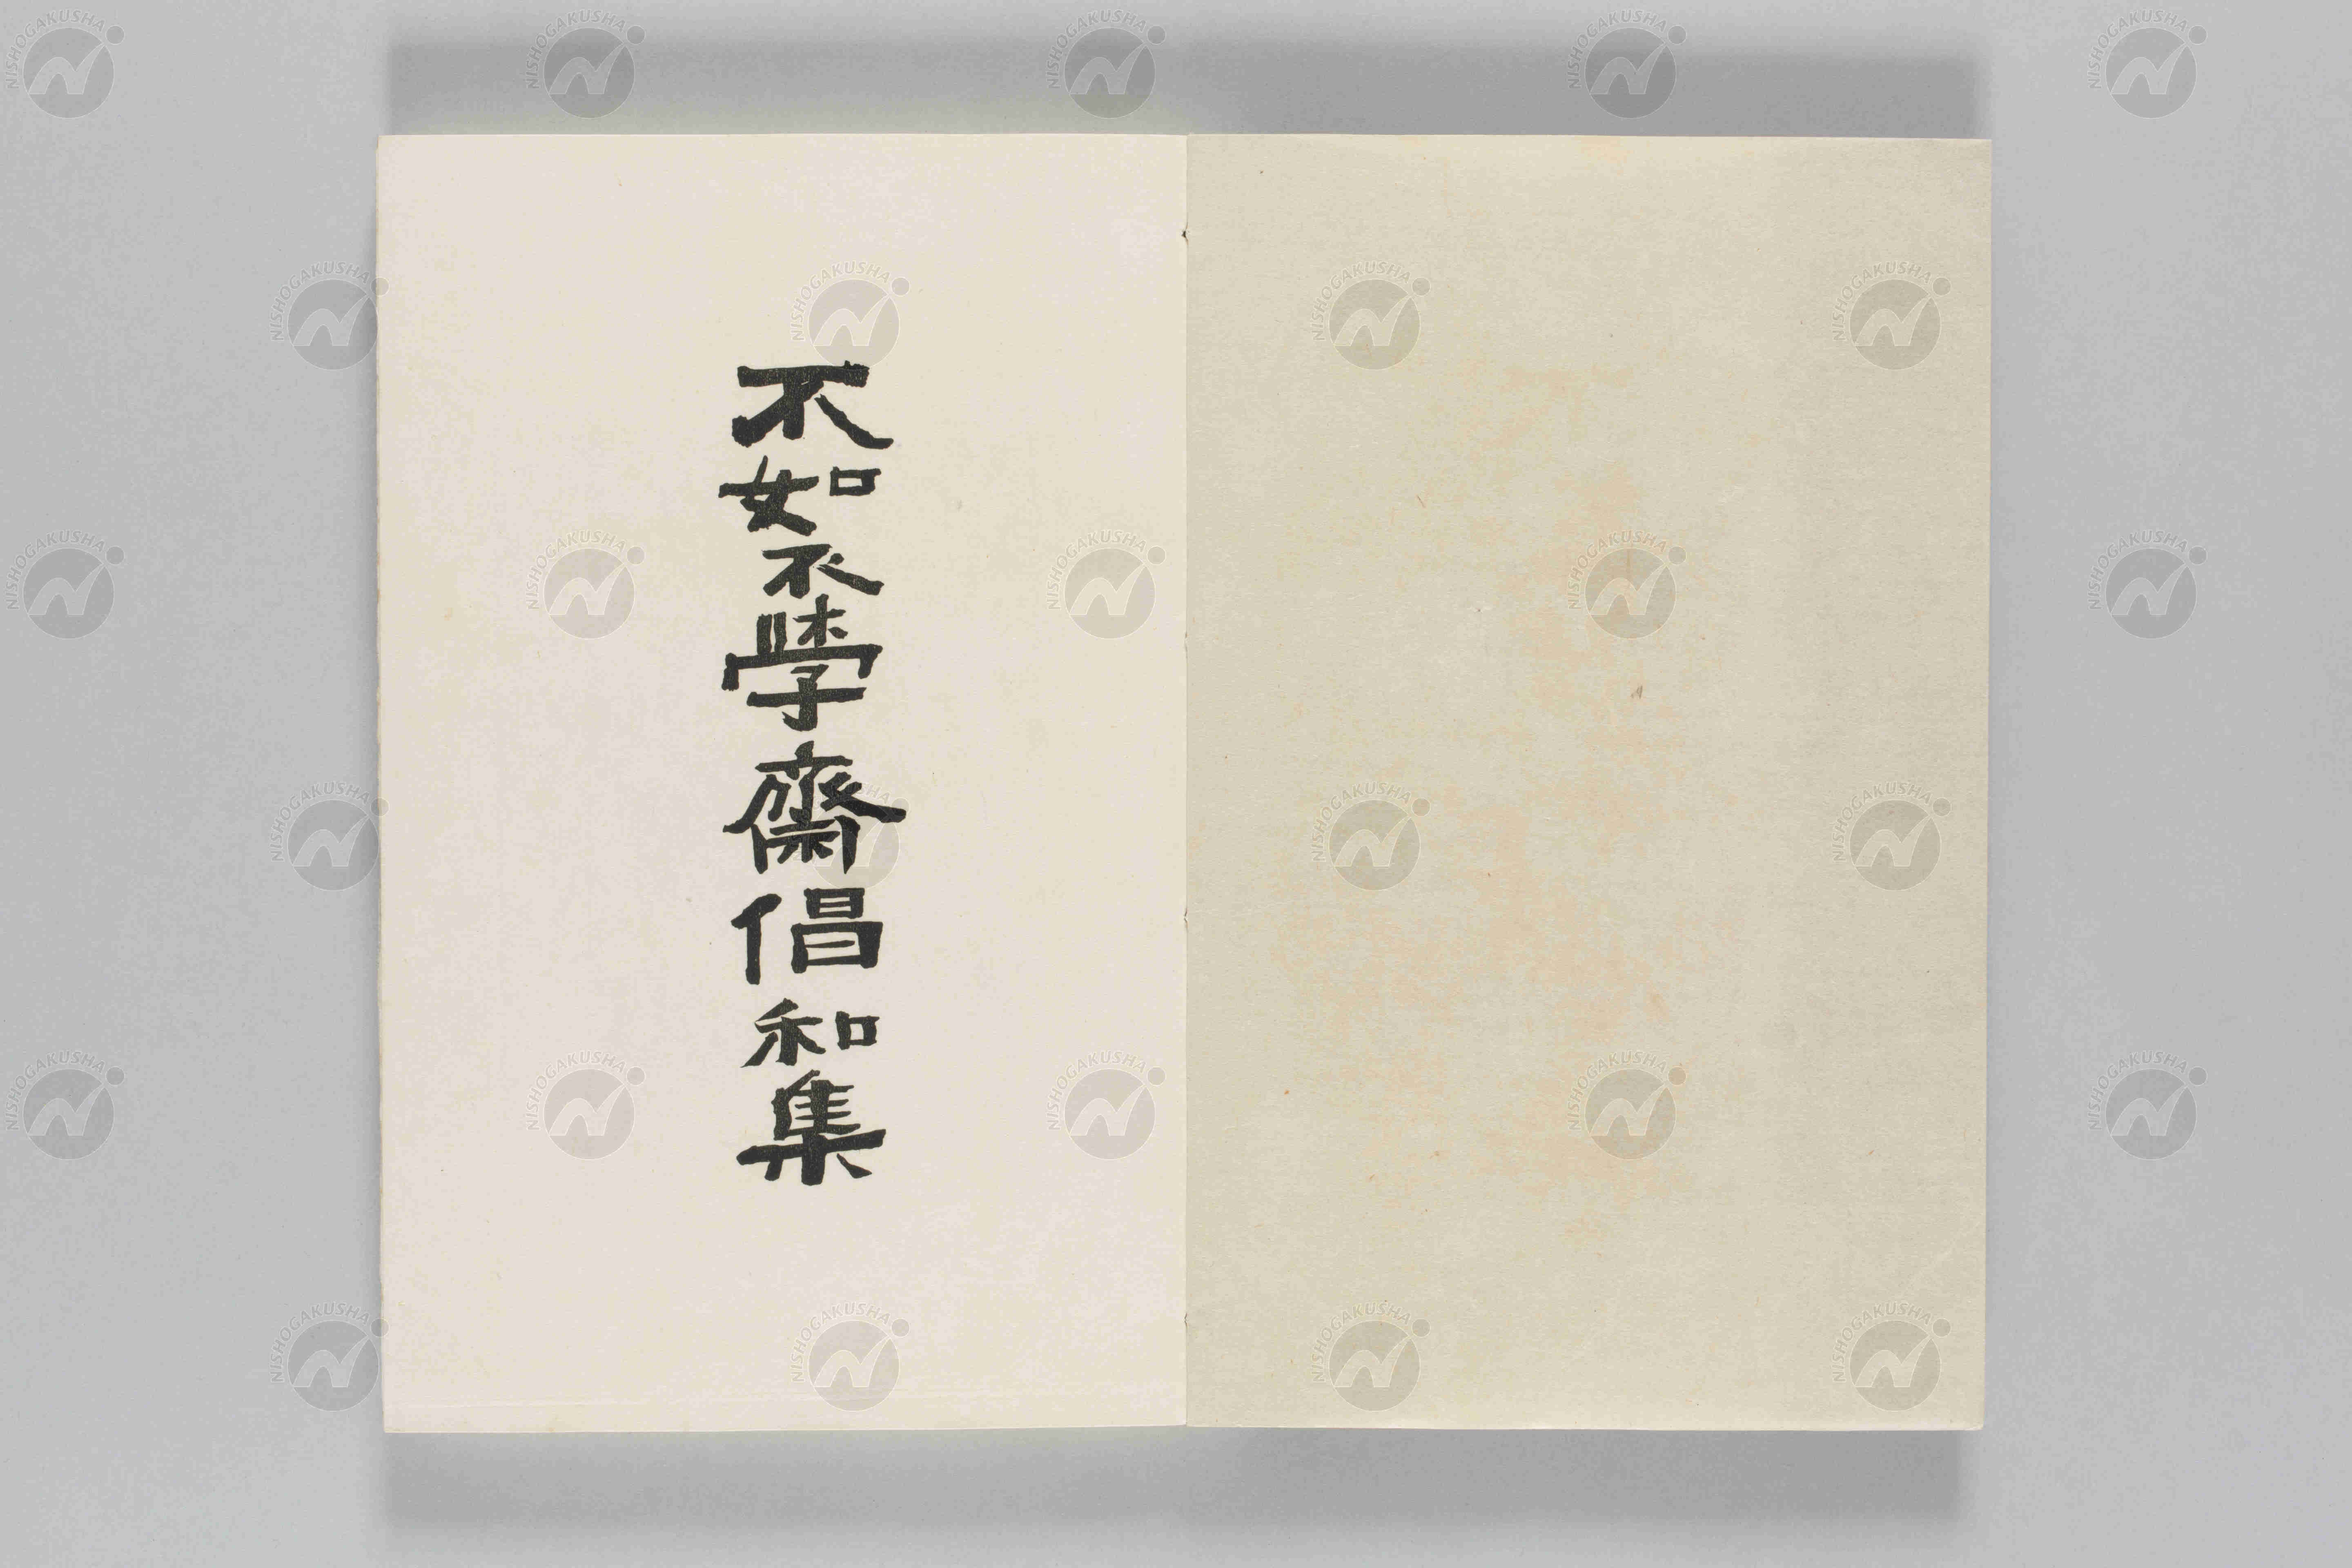 不如不學齋倡和集
NISHOGAKUSHA